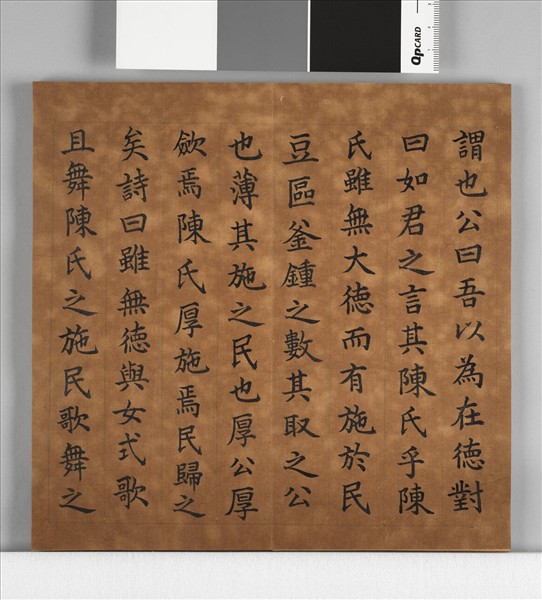 謂也公曰吾以為在德對
曰如君之言其陳氏乎陳
氏雖無大德而有施於民
豆區釜鍾之數其取之公
也薄其施之民也厚公厚
斂焉陳氏厚施焉民歸之
矣詩曰雖無德與女式歌
且舞陳氏之施民歌舞之
QPCARD